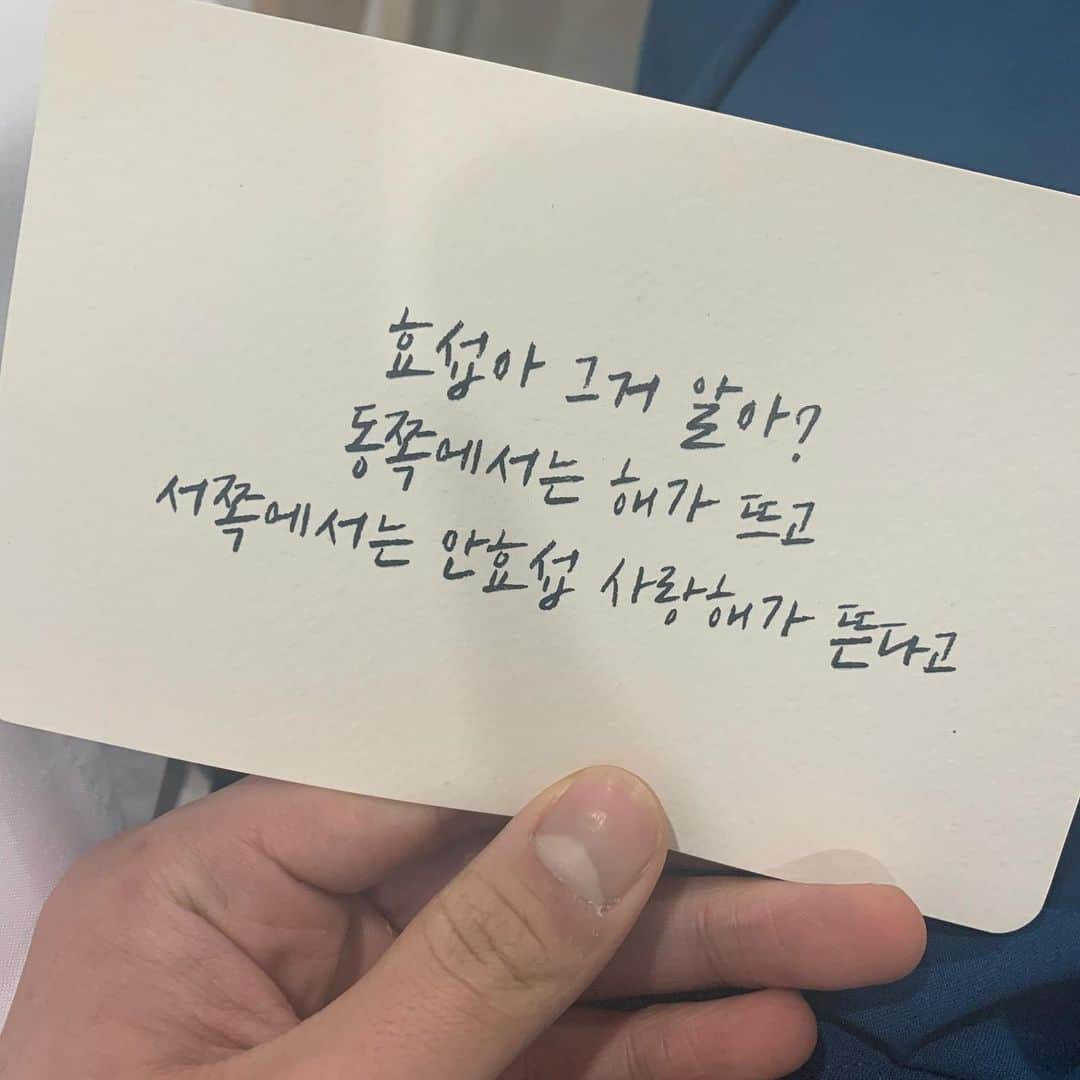 효섭아 그거 알아?
동쪽에서는 해가 뜨고
서쪽에서는 안효섭 사랑해가 뜬다고